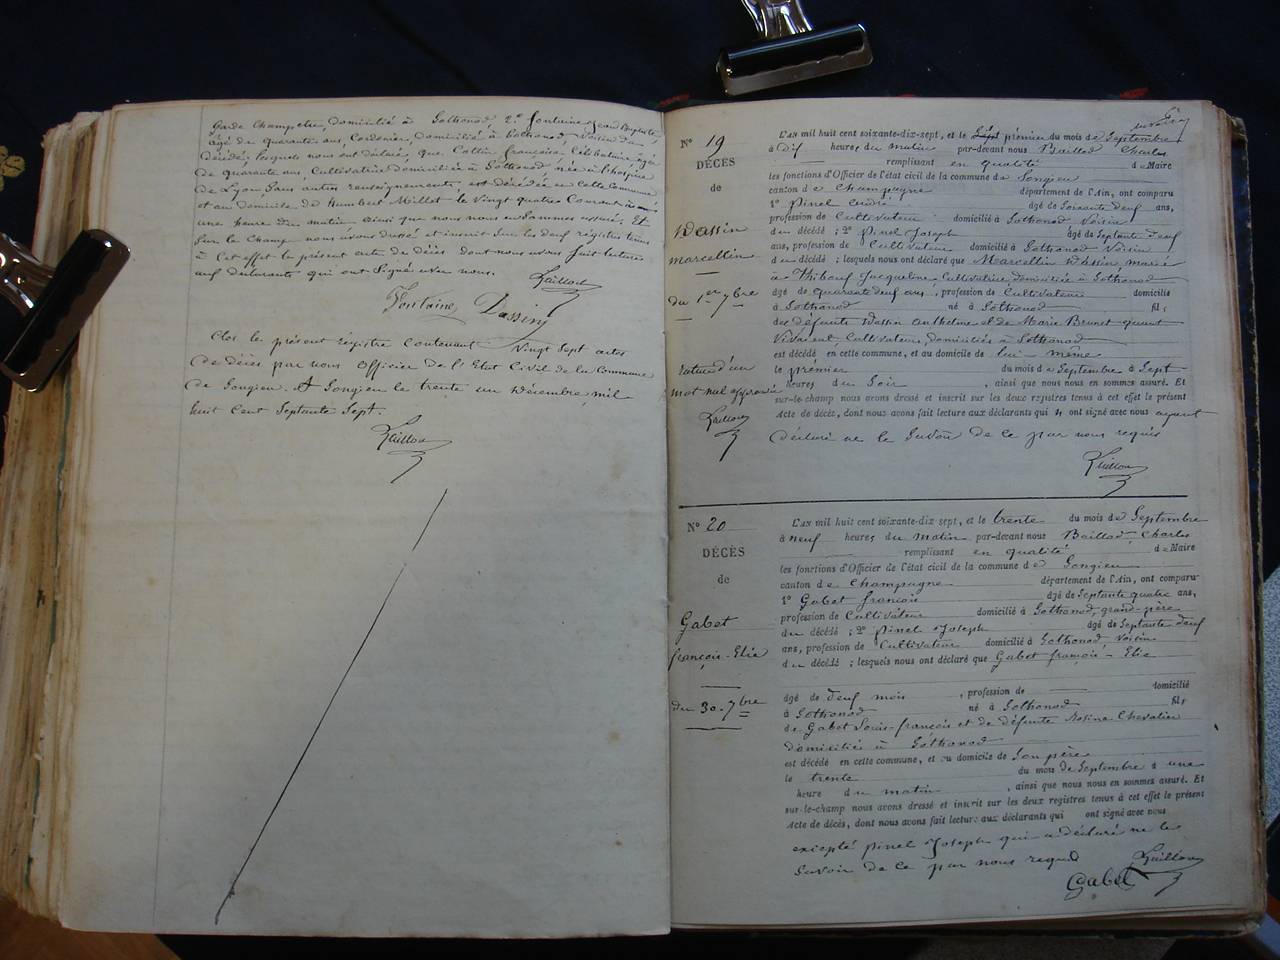 Garde Champetre, domicilié à Gothonod 2° Fontaine Jean Baptiste,
âgé de quarante ans, Cordonier, domicilié à Gothonod, Voisin du
décédé; lesquels nous ont déclaré, que Collin françoise Célibataire agée
de quarante ans, Cultivatrice domiciliée à Gothonod, née à l'hospice
de Lyon Sans autres renseignements, est décédée en Cette Commune
et au domicile de Humbert Millet le Vingt quatre Courant à
une heure du matin, ainsi que nous nous en Sommes assuré; Et
Sur le Champ nous avons dressé et inscrit Sur les deux régistres tenus
à Cet effet le présent acte de décès dont nous avons fait lecture
aux déclarants qui ont Signé avec nous.
Fontaine Dassin
Clos le présent régistre Contenant Vingt Sept actes
de décès par nous Officier de l'Etat Civil de la Commune
de Songieu. A Songieu le trente un Décembre mil
huit Cent Septante Sept.
N° 19
DÉCÈS
de
Dassin
marcellin
du 1er 7bre
rature d'un
mot nul approuvé
L'AN mil huit cent soixante-dix-sept, et le prémier du mois de Septembre
à Dix heures du matin par-devant nous Baillod Charles
remplissant en qualité de Maire
les fonctions d'Officier de l'état civil de la commune de Songieu
canton de Champagne département de l'Ain, ont comparu
1° Pinel André âgé de Soixante neuf ans,
profession de Cultivateur domicilié à Gothonod Voisin
du décédé ; 2° Pinel Joseph âgé de Septante neuf
ans, profession de Cultivateur domicilié à Gothonod Voisin
du décédé ; lesquels nous ont déclaré que Marcellin Dassin, marié
à Thibouf Jacqueline, Cultivatrice, domiciliée à Gothonod
âgé de quarante neuf ans, profession de Cultivateur domicilié
à Gothonod né à Gothonod fils
des défunts Dassin Anthelme et de Marie Brunet quant
Vivaient, Cultivateurs, domiciliés à Gothonod
est décédé en cette commune, et au domicile de lui-même
le prémier du mois de Septembre à Sept
heures du Soir, ainsi que nous nous en sommes assuré. Et
sur-le-champ nous avons dressé et inscrit sur les deux registres tenus à cet effet le présent
Acte de décès, dont nous avons fait lecture aux déclarants qui n ont signé avec nous ayant
déclaré ne le Savoir de ce par nous requis
N° 20
DÉCÈS
de
Gabet
françois-Elie
du 30. 7bre
L'AN mil huit cent soixante-dix-sept, et le trente du mois de Septembre
à neuf heures du matin par-devant nous Baillod Charles
remplissant en qualité de Maire
les fonctions d'Officier de l'état civil de la commune de Songieu
canton de Champagne département de l'Ain, ont comparu
1° Gabet françois âgé de Septante quatre ans,
profession de Cultivateur domicilié à Gothonod, grand-père
du décédé ; 2° Pinel Joseph âgé de Septante neuf
ans, profession de Cultivateur domicilié à Gothonod Voisin
du décédé ; lesquels nous ont déclaré que Gabet françois-Elie
âgé de neuf mois, profession de domicilié
à Gothonod né à Gothonod fils
de Gabet Louis-françois et de défunte Rosine Chevalier
domiciliés à Gothonod
est décédé en cette commune, et au domicile de Son père
le trente du mois de Septembre à une
heure du matin, ainsi que nous nous en sommes assuré. Et
sur-le-champ nous avons dressé et inscrit sur les deux registres tenus à cet effet le présent
Acte de décès, dont nous avons fait lecture aux déclarants qui ont signé avec nous
excepté Pinel Joseph qui a déclaré ne le
Savoir de ce par nous requis
Gabet